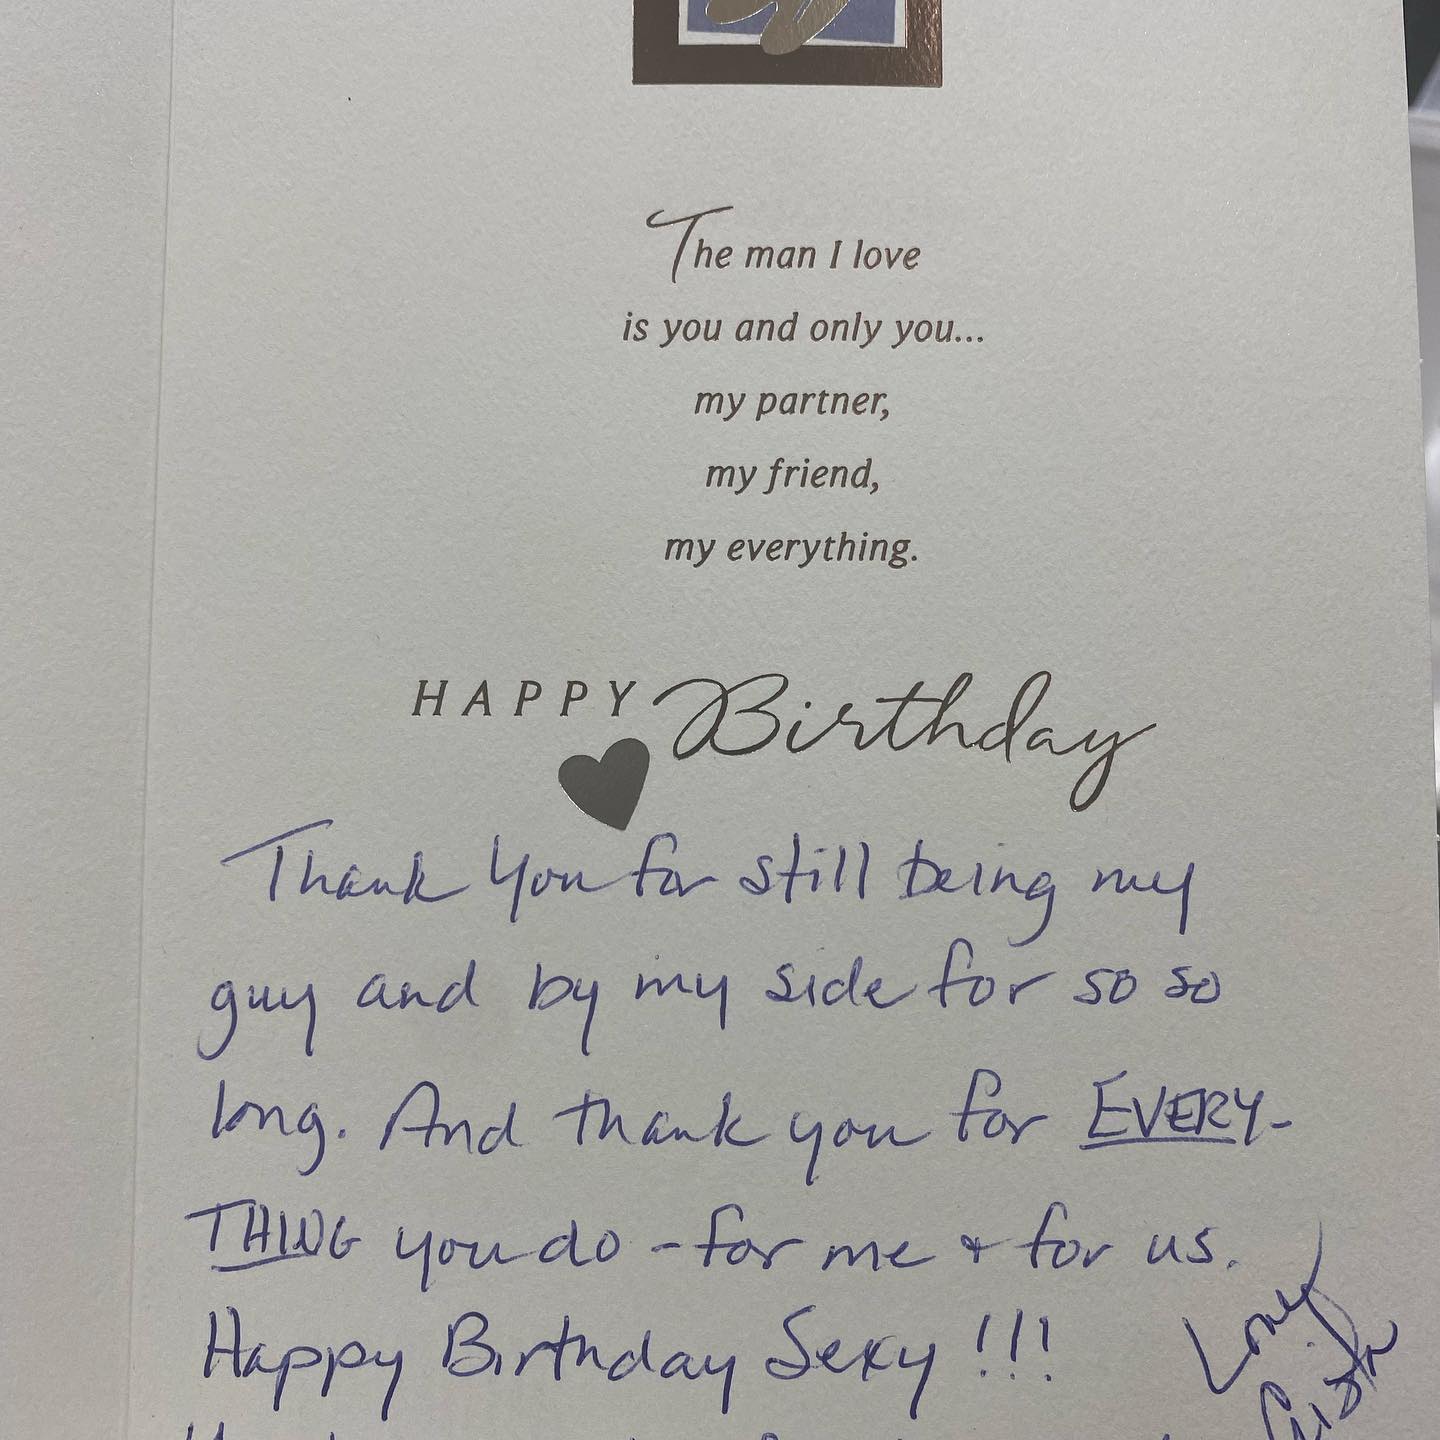 The man I love
is you and only you...
my partner,
my friend,
my everything.
HAPPY Birthday
Thank you for still being my
guy and by my side for so so
long. And thank you for EVERY-
THING you do - for me + for us.
Happy Birthday Sexy !!!